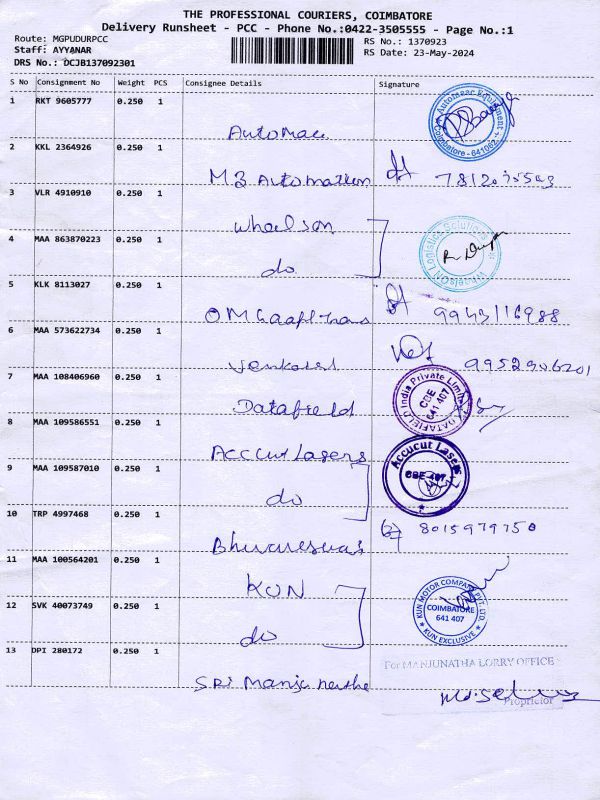 THE PROFESSIONAL COURIERS, COIMBATORE
Delivery Runsheet - PCC - Phone No.:0422-3505555 - Page No.:1
Route: MGPUDURPCC
Staff: AYYANAR
DRS No.: DCJB137092301
RS No.: 1370923
RS Date: 23-May-2024
S No Consignment No Weight PCS Consignee Details Signature
1 RKT 9605777 0.250 1
Automac
Automear Equipment
Coimbatore - 641062
2 KKL 2364926 0.250 1
M3 Automation
3 VLR 4910910 0.250 1
Wheelson
4 MAA 863870223 0.250 1
do
WheelsON Logistics Solutions
5 KLK 8113027 0.250 1
OM 9943116988
6 MAA 573622734 0.250 1
Venkatesh 9952906201
7 MAA 108406960 0.250 1
Datafield
DATAFIELD India Private Limited
CBE
641 407
8 MAA 109586551 0.250 1
Acccut Lasers
9 MAA 109587010 0.250 1
do
Accucut Lasers
CBE-407
10 TRP 4997468 0.250 1
8015979750
11 MAA 100564201 0.250 1
KUN
12 SVK 40073749 0.250 1
do
KUN MOTOR COMPANY PVT. LTD.
COIMBATORE
641 407
KUN EXCLUSIVE
13 DPI 280172 0.250 1
Sri
For MANJUNATHA LORRY OFFICE
Proprietor